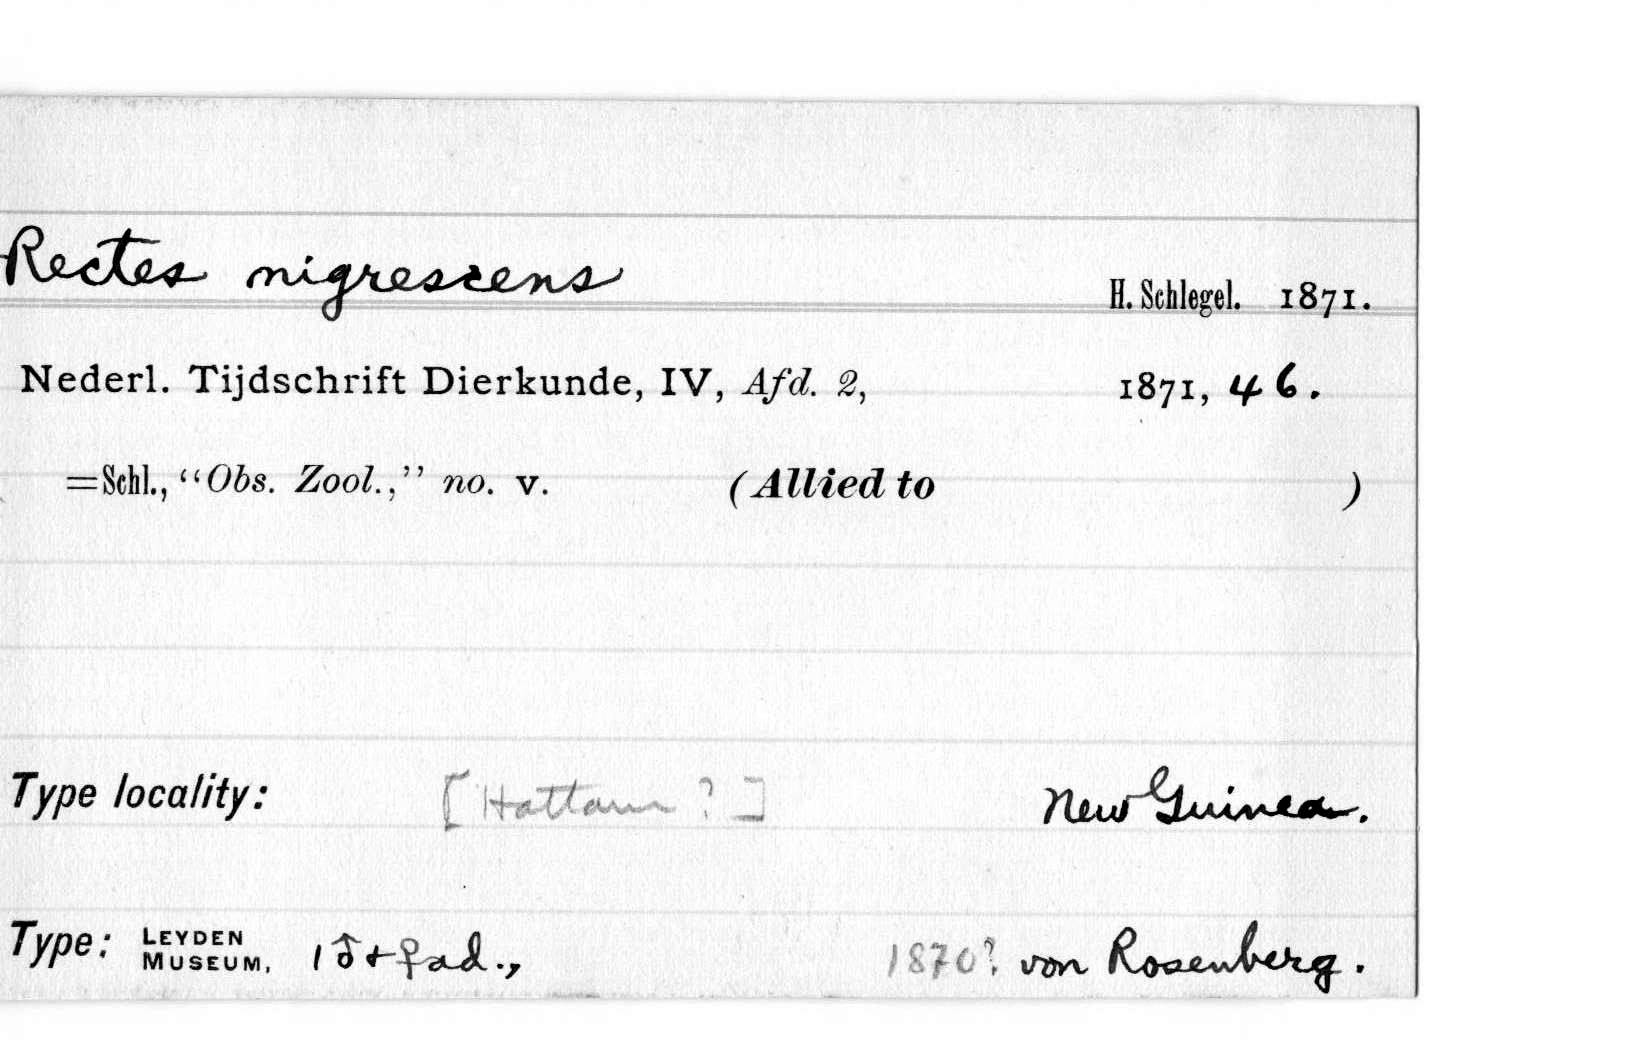 Rectes nigrescens H. Schlegel. 1871.
Nederl. Tijdschrift Dierkunde, IV, Afd. 2, 1871, 46.
=Schl., “Obs. Zool.,” no. v. (Allied to )
Type locality: [Hattam ?] New Guinea.
Type: LEYDEN MUSEUM, 1 ♂ + ♀ ad., 1870? von Rosenberg.